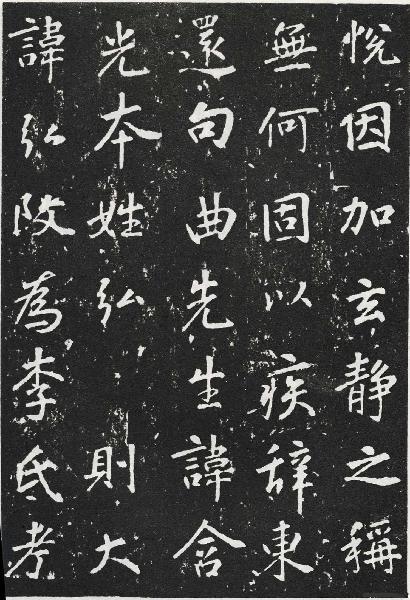 悦因加玄静之稱
無何固以疾辞東
還句曲先生諱含
光本姓弘 則大
諱弘改為李氏考